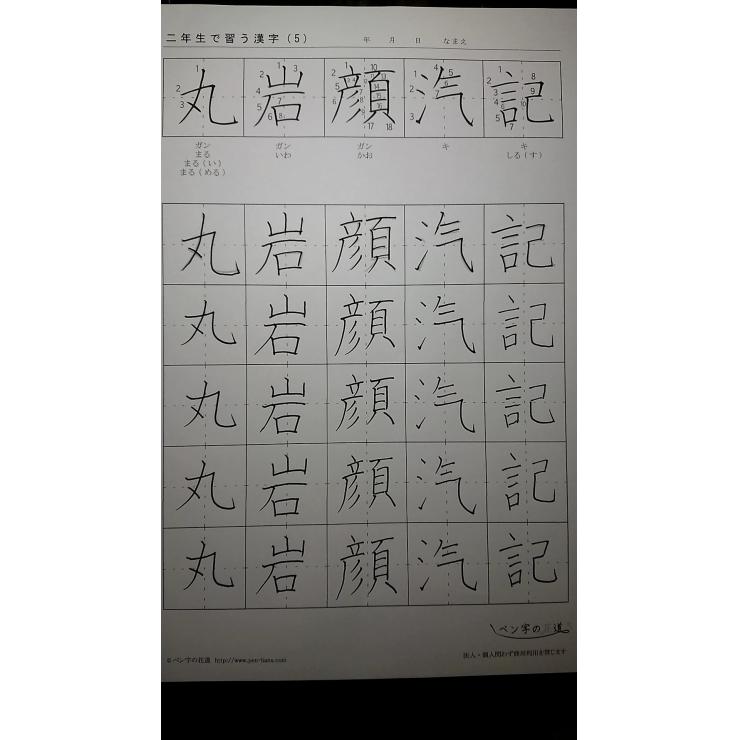 二年生で習う漢字(5) 年 月 日 なまえ
丸 岩 顔 汽 記
ガン ガン ガン キ キ
まる いわ かお しる(す)
まる(い)
まる(める)
丸 岩 顔 汽 記
丸 岩 顔 汽 記
丸 岩 顔 汽 記
丸 岩 顔 汽 記
丸 岩 顔 汽 記
ペン字の花道
©ペン字の花道 http://www.pen-hana.com 法人・個人問わず商用利用を禁じます